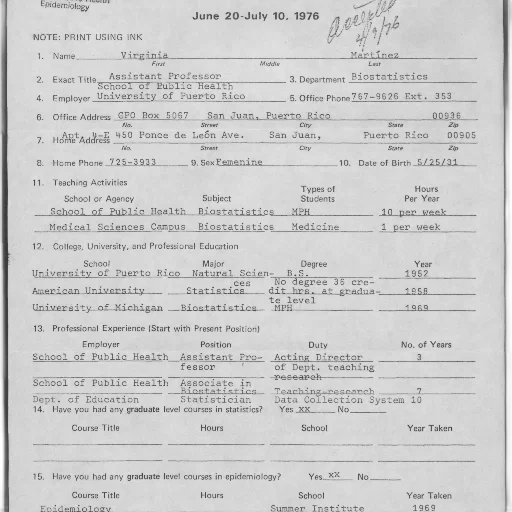 Epidemiology
June 20-July 10, 1976
Accepted
4/9/76
NOTE: PRINT USING INK
1. Name Virginia Martínez
First Middle Last
2. Exact Title Assistant Professor 3. Department Biostatistics
School of Public Health
4. Employer University of Puerto Rico 5. Office Phone 767-9626 Ext. 353
6. Office Address CPO Box 5067 San Juan, Puerto Rico 00936
No. Street City State Zip
7. Home Address Apt. 4-E 450 Ponce de León Ave. San Juan, Puerto Rico 00905
No. Street City State Zip
8. Home Phone 725-3933 9. Sex Femenine 10. Date of Birth 5/25/31
11. Teaching Activities
School or Agency Subject Types of Students Hours Per Year
School of Public Health Biostatistics MPH 10 per week
Medical Sciences Campus Biostatistics Medicine 1 per week
12. College, University, and Professional Education
School Major Degree Year
University of Puerto Rico Natural Scien- B.S. 1952
ces No degree 36 cre-
American University Statistics dit hrs. at gradua- 1958
te level
University of Michigan Biostatistics MPH 1969
13. Professional Experience (Start with Present Position)
Employer Position Duty No. of Years
School of Public Health Assistant Pro- Acting Director 3
fessor of Dept. teaching
research
School of Public Health Associate in
Biostatistics Teaching-research 7
Dept. of Education Statistician Data Collection System 10
14. Have you had any graduate level courses in statistics? Yes xx No
Course Title Hours School Year Taken
15. Have you had any graduate level courses in epidemiology? Yes xx No
Course Title Hours School Year Taken
Epidemiology Summer Institute 1969